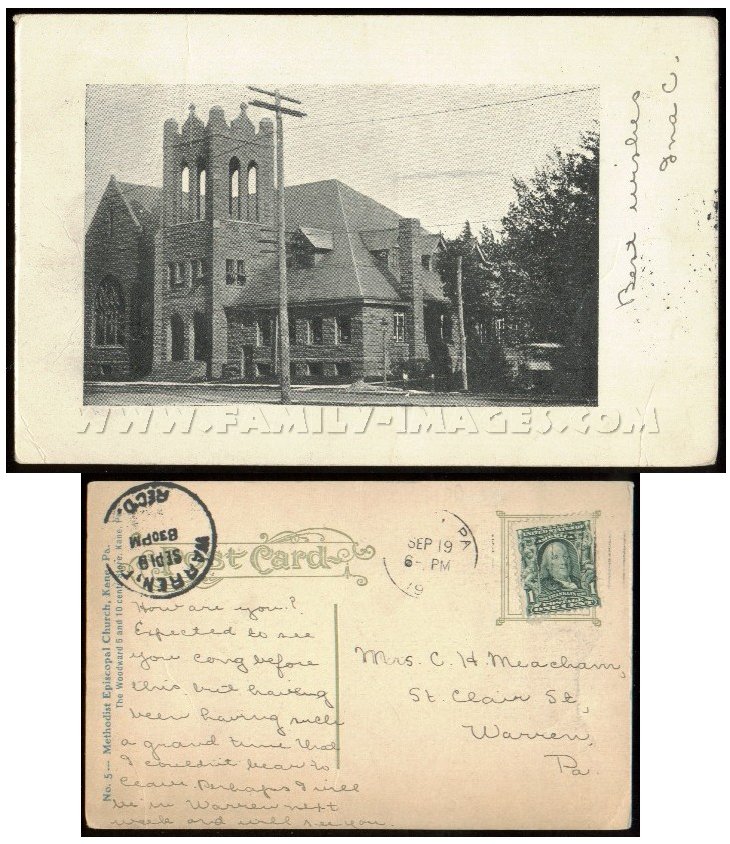 Best wishes
Ina C.
WWW.FAMILY-IMAGES.COM
No. 5 — Methodist Episcopal Church, Kane, Pa.
The Woodward 5 and 10 cent Kane, Pa.
REC'D.
8 30 PM
SEP 19
WARREN, P
Post Card
PA
SEP 19
6 - PM
How are you?
Expected to see
you long before
this, but having
been having such
a grand time that
I couldn't bear to
leave. Perhaps I will
be in Warren next
week and will see you.
Mrs. C. H. Meacham,
St. Clair St,
Warren,
Pa.